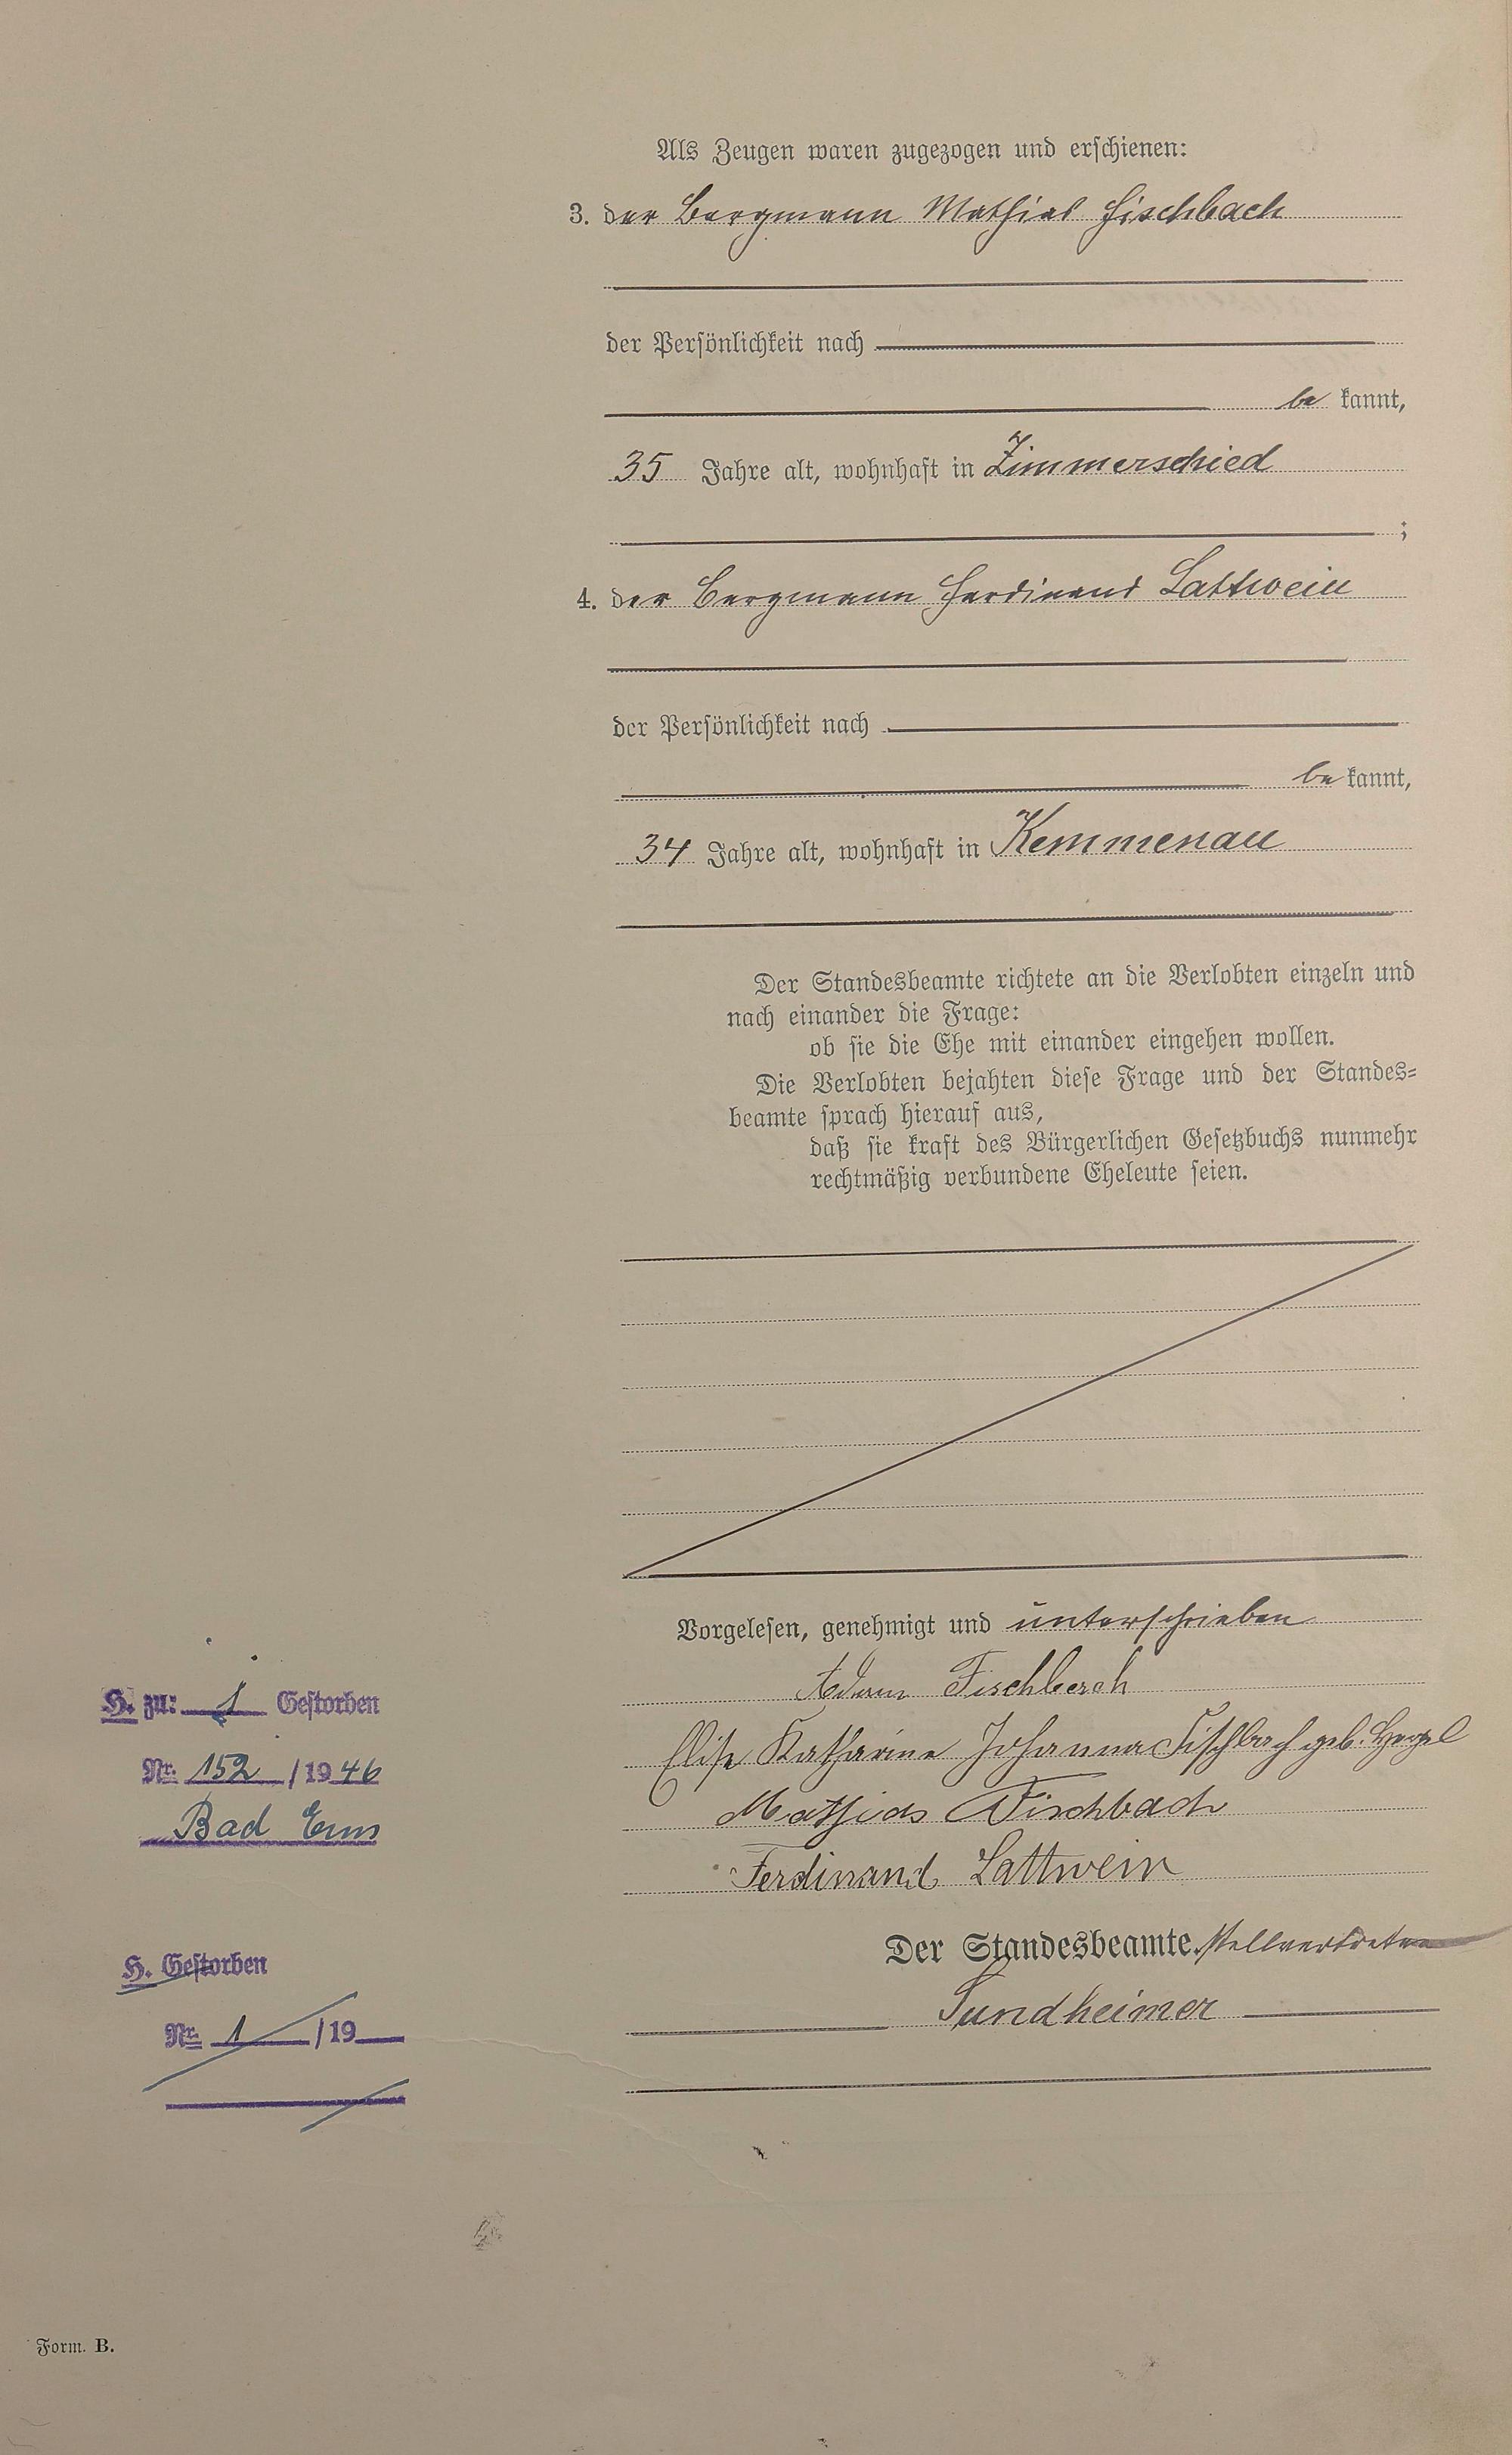 Als Zeugen waren zugezogen und erschienen:
3. der Bergmann Mathias Fischbach
der Persönlichkeit nach
be kannt,
35 Jahre alt, wohnhaft in Zimmerschied
;
4. der Bergmann Ferdinand Lattwein
der Persönlichkeit nach
be kannt,
34 Jahre alt, wohnhaft in Kemmenau
Der Standesbeamte richtete an die Verlobten einzeln und
nach einander die Frage:
ob sie die Ehe mit einander eingehen wollen.
Die Verlobten bejahten diese Frage und der Standes=
beamte sprach hierauf aus,
daß sie kraft des Bürgerlichen Gesetzbuchs nunmehr
rechtmäßig verbundene Eheleute seien.
Vorgelesen, genehmigt und unterschrieben
Adam Fischbach
Elise Katharine Johanna Fischbach geb.
Mathias Fischbach
Ferdinand Lattwein
Der Standesbeamte. Stellvertreter
Sundheimer
H. zu: 1 Gestorben
Nr. 152 / 19 46
Bad Ems
H. Gestorben
Nr. 1 / 19
Form. B.